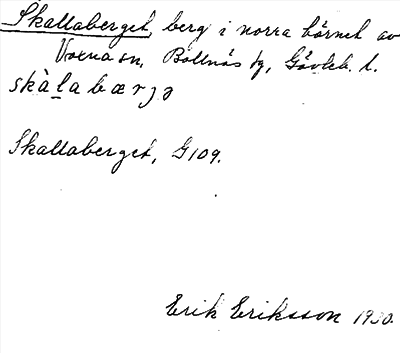 Skallaberget, berg i norra hörnet av
Voxna sn, Bollnäs tg, Gävleb. l.
skàḷa bærjə
Skallaberget, G109.
Erik Eriksson 1930.